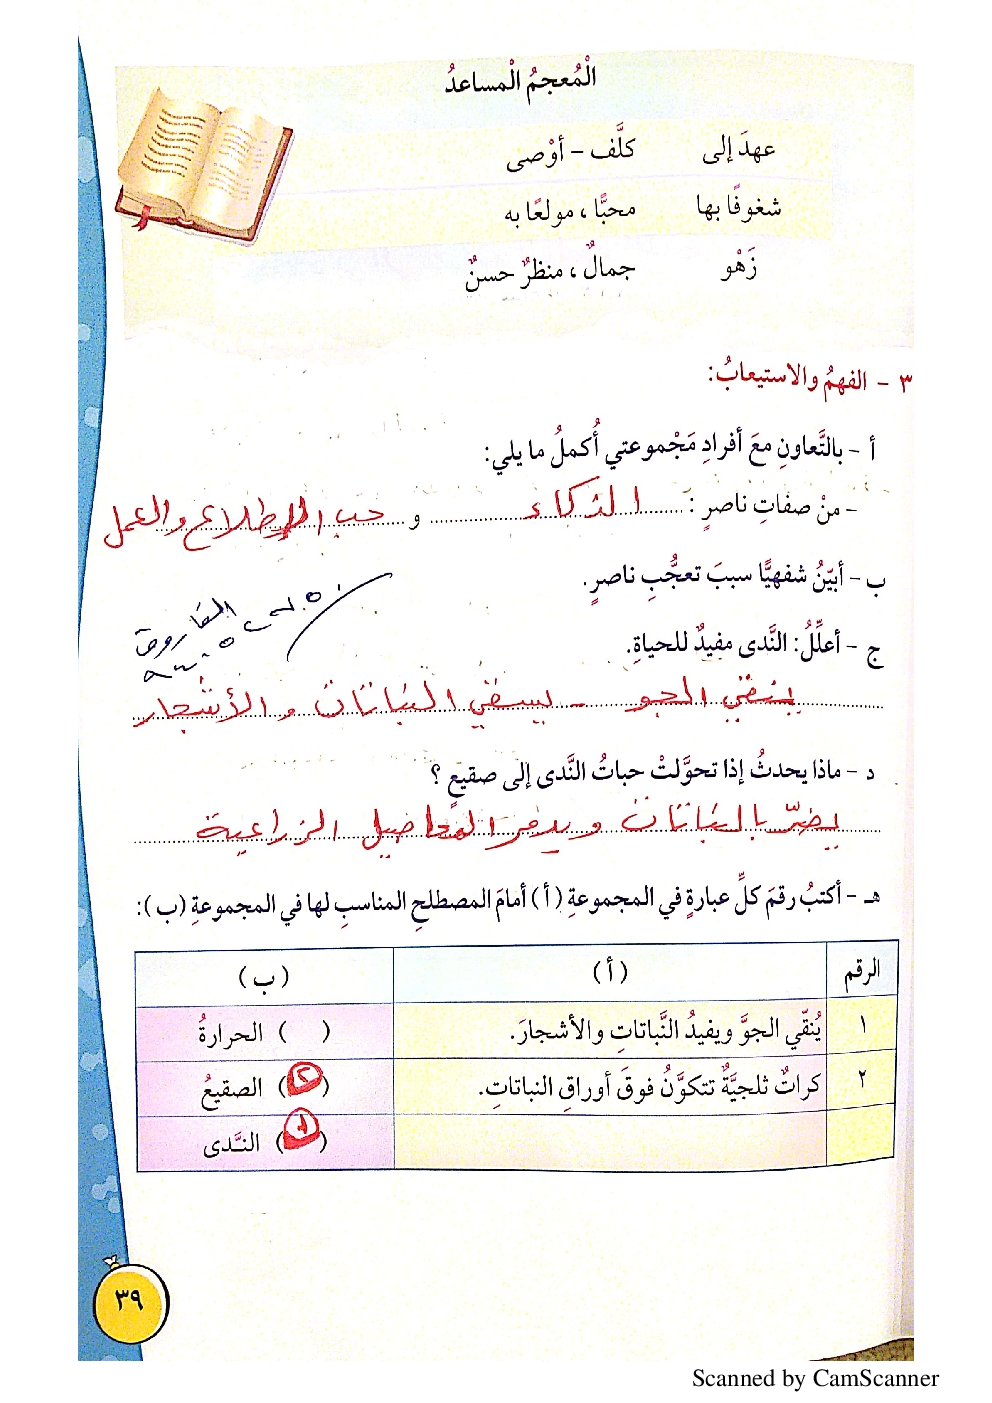 الْمُعجمُ الْمساعدُ
عهدَ إلى كلَّف - أوْصى
شغوفًا بها محبًّا ، مولعًا به
زَهْو جمالٌ ، منظرٌ حسنٌ
٣ - الفهمُ والاستيعابُ:
أ - بالتَّعاونِ معَ أفرادِ مَجْموعتي أُكملُ ما يلي:
- منْ صفاتِ ناصرٍ : الذكاء و حب الإطلاع والعمل
ب - أبيّنُ شفهيًّا سببَ تعجُّبِ ناصرٍ.
الفاروق
ج - أعلِّلُ: النَّدى مفيدٌ للحياةِ.
ينقي الجو - يسقي النباتات والأشجار
د - ماذا يحدثُ إذا تحوَّلتْ حباتُ النَّدى إلى صقيعٍ ؟
يضرّ بالنباتات ويدمر المحاصيل الزراعية
هـ - أكتبُ رقمَ كلِّ عبارةٍ في المجموعةِ (أ) أمامَ المصطلحِ المناسبِ لها في المجموعةِ (ب):
الرقم (أ) (ب)
١ يُنقّي الجوَّ ويفيدُ النَّباتاتِ والأشجارَ. ( ) الحرارةُ
٢ كراتٌ ثلجيَّةٌ تتكوَّنُ فوقَ أوراقِ النباتاتِ. (٢) الصقيعُ
(١) النَّدى
٣٩
Scanned by CamScanner